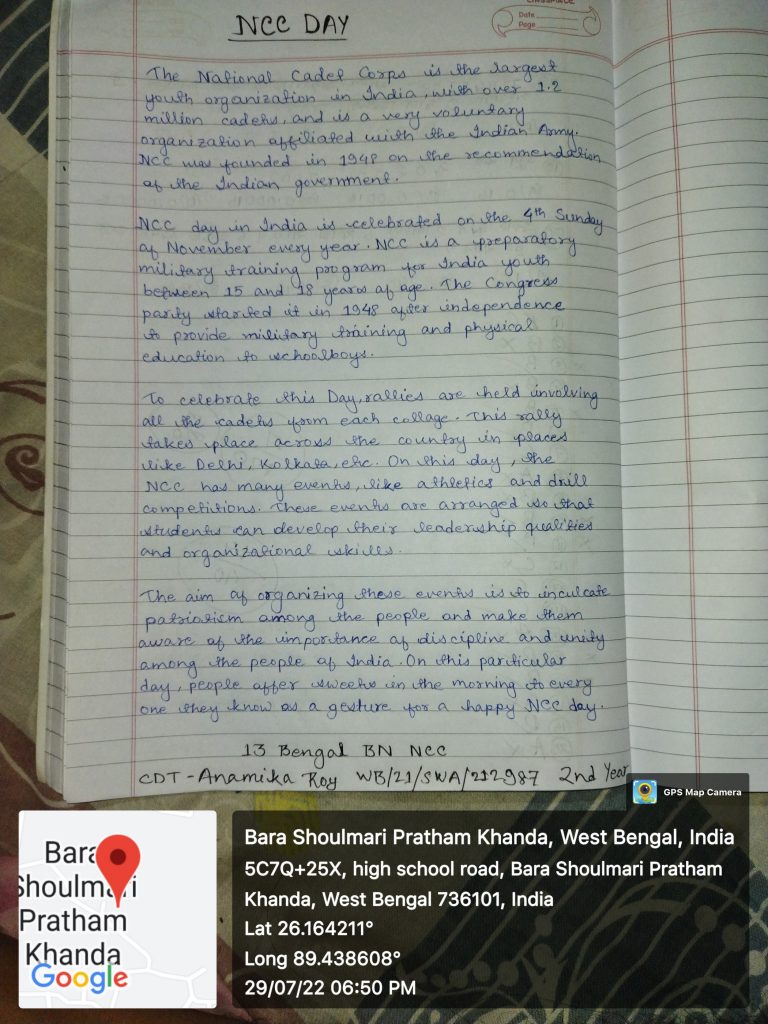 NCC DAY
CLASSMATE
Date
Page
The National Cadet Corps is the largest
youth organization in India, with over 1.2
million cadets, and is a very voluntary
organization affiliated with the Indian Army.
NCC was founded in 1948 on the recommendation
of the Indian government.
NCC day in India is celebrated on the 4th Sunday
of November every year. NCC is a preparatory
military training program for India youth
between 15 and 18 years of age. The Congress
party started it in 1948 after independence
to provide military training and physical
education to schoolboys.
To celebrate this Day, rallies are held involving
all the cadets from each collage. This rally
takes place across the country in places
like Delhi, Kolkata, etc. On this day, the
NCC has many events, like athletics and drill
competitions. These events are arranged so that
students can develop their leadership qualities
and organizational skills.
The aim of organizing these events is to inculcate
patriotism among the people and make them
aware of the importance of discipline and unity
among the people of India. On this particular
day, people offer sweets in the morning to every
one they know as a gesture for a happy NCC day.
13 Bengal BN NCC
CDT - Anamika Roy WB/21/SWA/212987 2nd Year
GPS Map Camera
Bara Shoulmari Pratham Khanda, West Bengal, India
5C7Q+25X, high school road, Bara Shoulmari Pratham
Khanda, West Bengal 736101, India
Lat 26.164211°
Long 89.438608°
29/07/22 06:50 PM
Bara
Shoulmari
Pratham
Khanda
Google